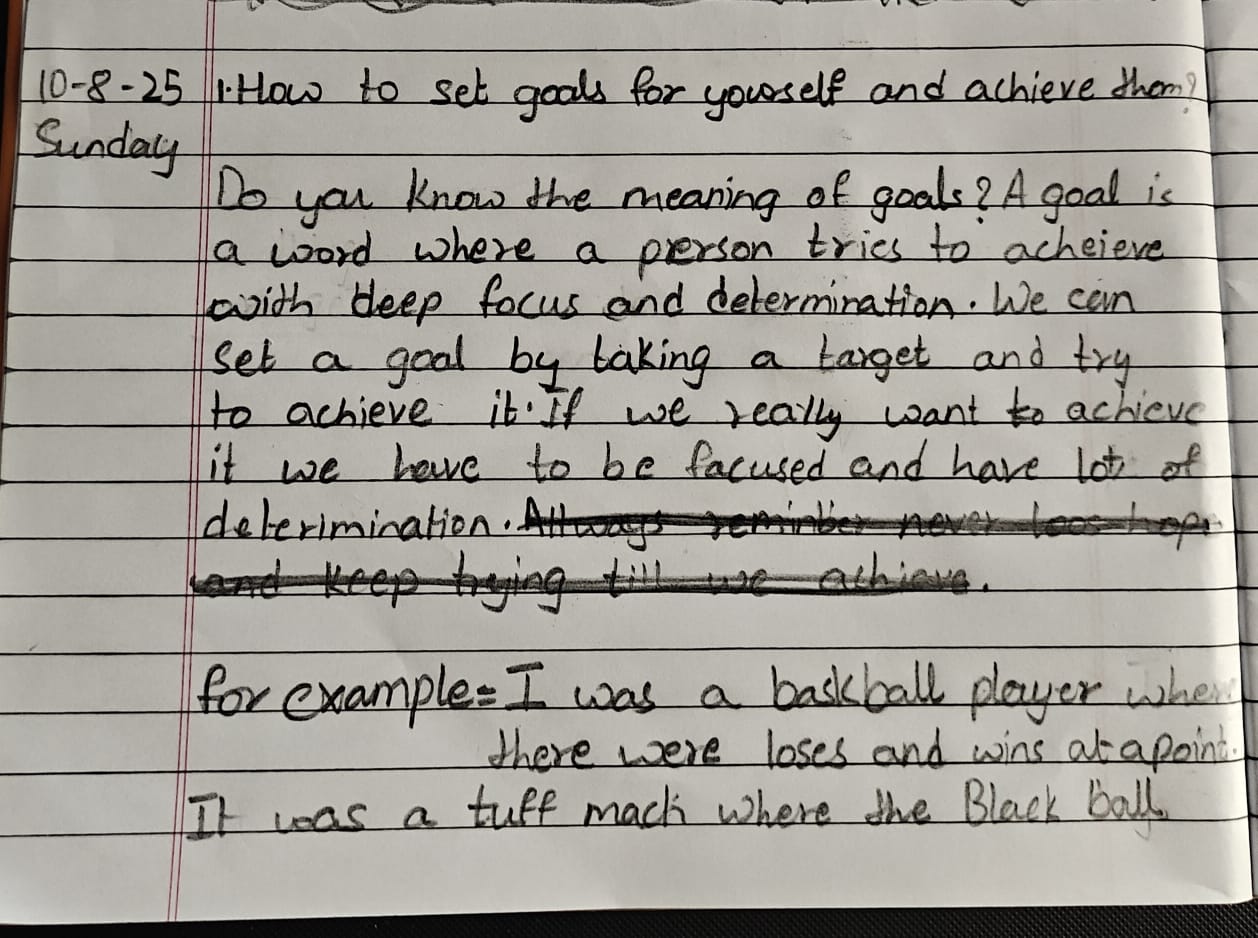 10-8-25 1.How to set goals for yourself and achieve them?
Sunday
Do you know the meaning of goals? A goal is
a word where a person tries to acheieve
with deep focus and determination. We can
set a goal by taking a target and try
to achieve it. If we really want to achieve
it we have to be facused and have lot of
deterimination. Allways reminber never loos hope
and keep trying till we achieve.
for example= I was a baskball player where
there were loses and wins at a point.
It was a tuff mach where the Black ball